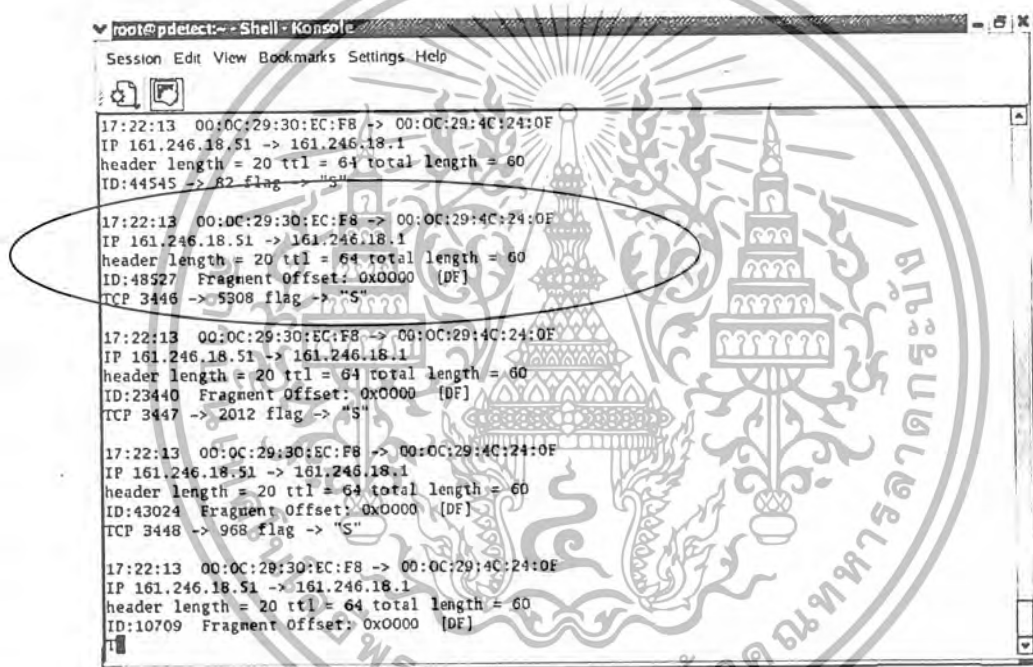 root@pdetect:~ - Shell - Konsole
Session Edit View Bookmarks Settings Help
17:22:13 00:0C:29:30:EC:F8 -> 00:0C:29:4C:24:0F
IP 161.246.18.51 -> 161.246.18.1
header length = 20 ttl = 64 total length = 60
ID:44545 -> 82 flag -> "S"
17:22:13 00:0C:29:30:EC:F8 -> 00:0C:29:4C:24:0F
IP 161.246.18.51 -> 161.246.18.1
header length = 20 ttl = 64 total length = 60
ID:48527 Fragment Offset: 0x0000 [DF]
TCP 3446 -> 5308 flag -> "S"
17:22:13 00:0C:29:30:EC:F8 -> 00:0C:29:4C:24:0F
IP 161.246.18.51 -> 161.246.18.1
header length = 20 ttl = 64 total length = 60
ID:23440 Fragment Offset: 0x0000 [DF]
TCP 3447 -> 2012 flag -> "S"
17:22:13 00:0C:29:30:EC:F8 -> 00:0C:29:4C:24:0F
IP 161.246.18.51 -> 161.246.18.1
header length = 20 ttl = 64 total length = 60
ID:43024 Fragment Offset: 0x0000 [DF]
TCP 3448 -> 968 flag -> "S"
17:22:13 00:0C:29:30:EC:F8 -> 00:0C:29:4C:24:0F
IP 161.246.18.51 -> 161.246.18.1
header length = 20 ttl = 64 total length = 60
ID:10709 Fragment Offset: 0x0000 [DF]
T